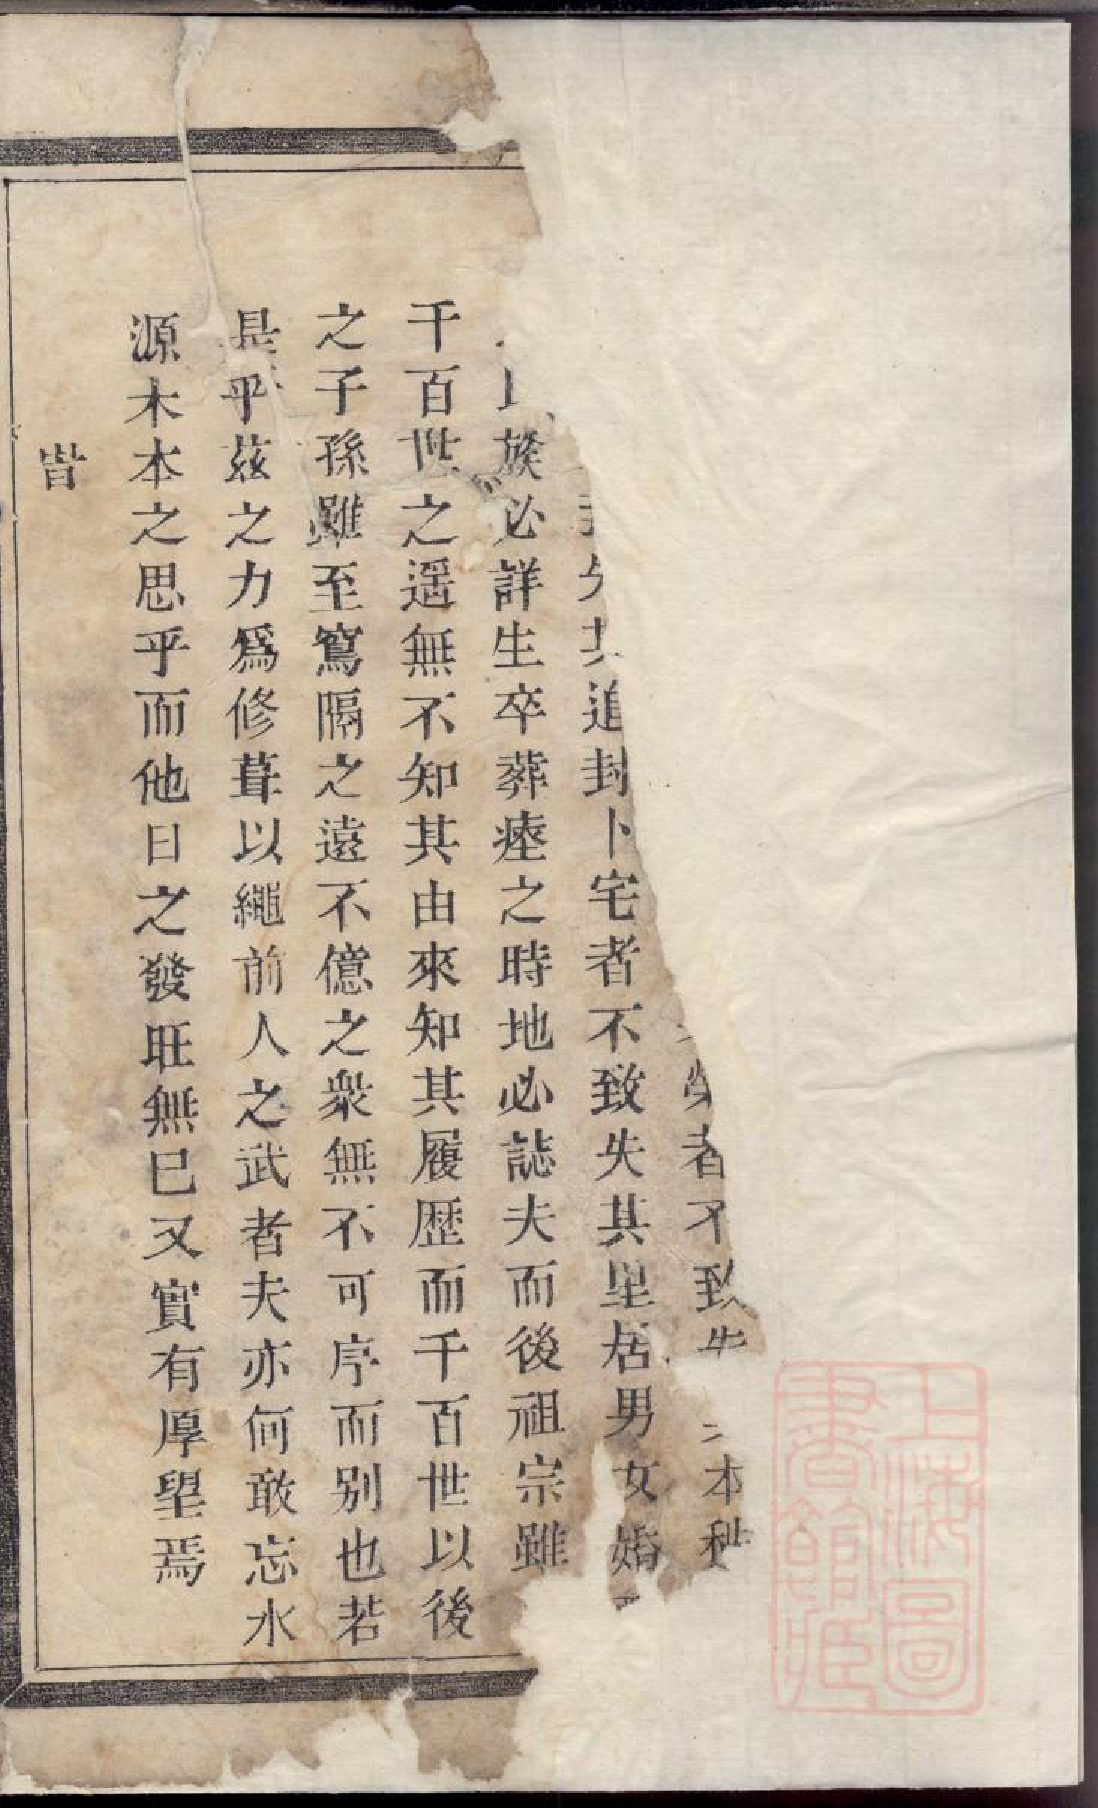 者不致失本
追封卜宅者不致失其里居男女婚
族必詳生卒葬瘞之時地必誌夫而後祖宗雖
千百世之遥無不知其由來知其履歴而千百世以後
之子孫雖至窵隔之遠不億之衆無不可序而别也若
是乎茲之力爲修葺以繩前人之武者夫亦何敢忘水
源木本之思乎而他日之發旺無已又實有厚望焉
旹
上海圖書館藏